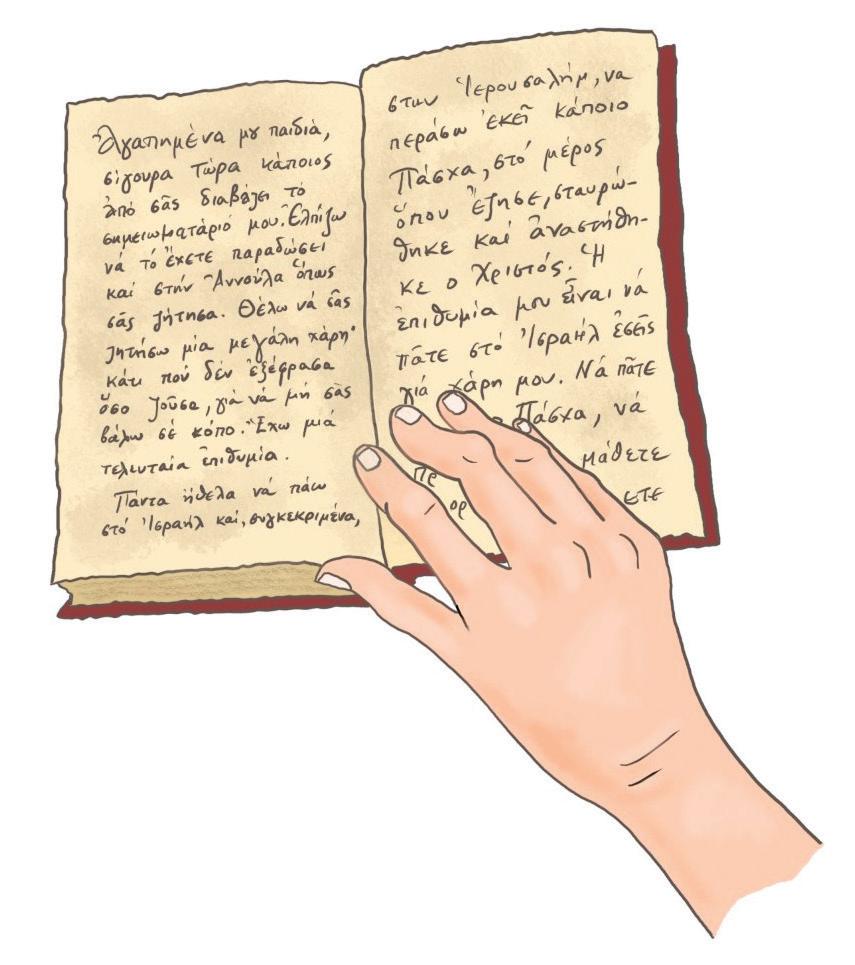 Ἀγαπημένα μȣ παιδιὰ,
σίγουρα τώρα κάποιος
ἀπό σᾶς διαβάζει τό
σημειωματάριό μου. Ἐλπίζω
νά τό ἔχετε παραδώσει
καί στήν Ἀννούλα ὅπως
σᾶς ζήτησα. Θέλω νά σᾶς
ζητήσω μία μεγάλη χάρη·
κάτι πού δέν ἐξέφρασα
ὅσο ζοῦσα, γιά νά μή σᾶς
βάλω σέ κόπο. Ἔχω μιά
τελευταία ἐπιθυμία.
Πάντα ἤθελα νά πάω
στό Ἰσραήλ καί, συγκεκριμένα,
στην Ἱερουσαλήμ, να
περάσω ἐκεῖ κάποιο
Πάσχα, στό μέρος
ὅπου ἔζησε, σταυρώ-
θηκε καί ἀναστήθη-
κε ο Χριστός. Ἡ
ἐπιθυμία μου εἶναι νά
πᾶτε στό Ἰσραήλ ἐσεῖς
γιά χάρη μου. Νά πᾶτε
Πάσχα, νά
πρ μάθετε
ορ ετε